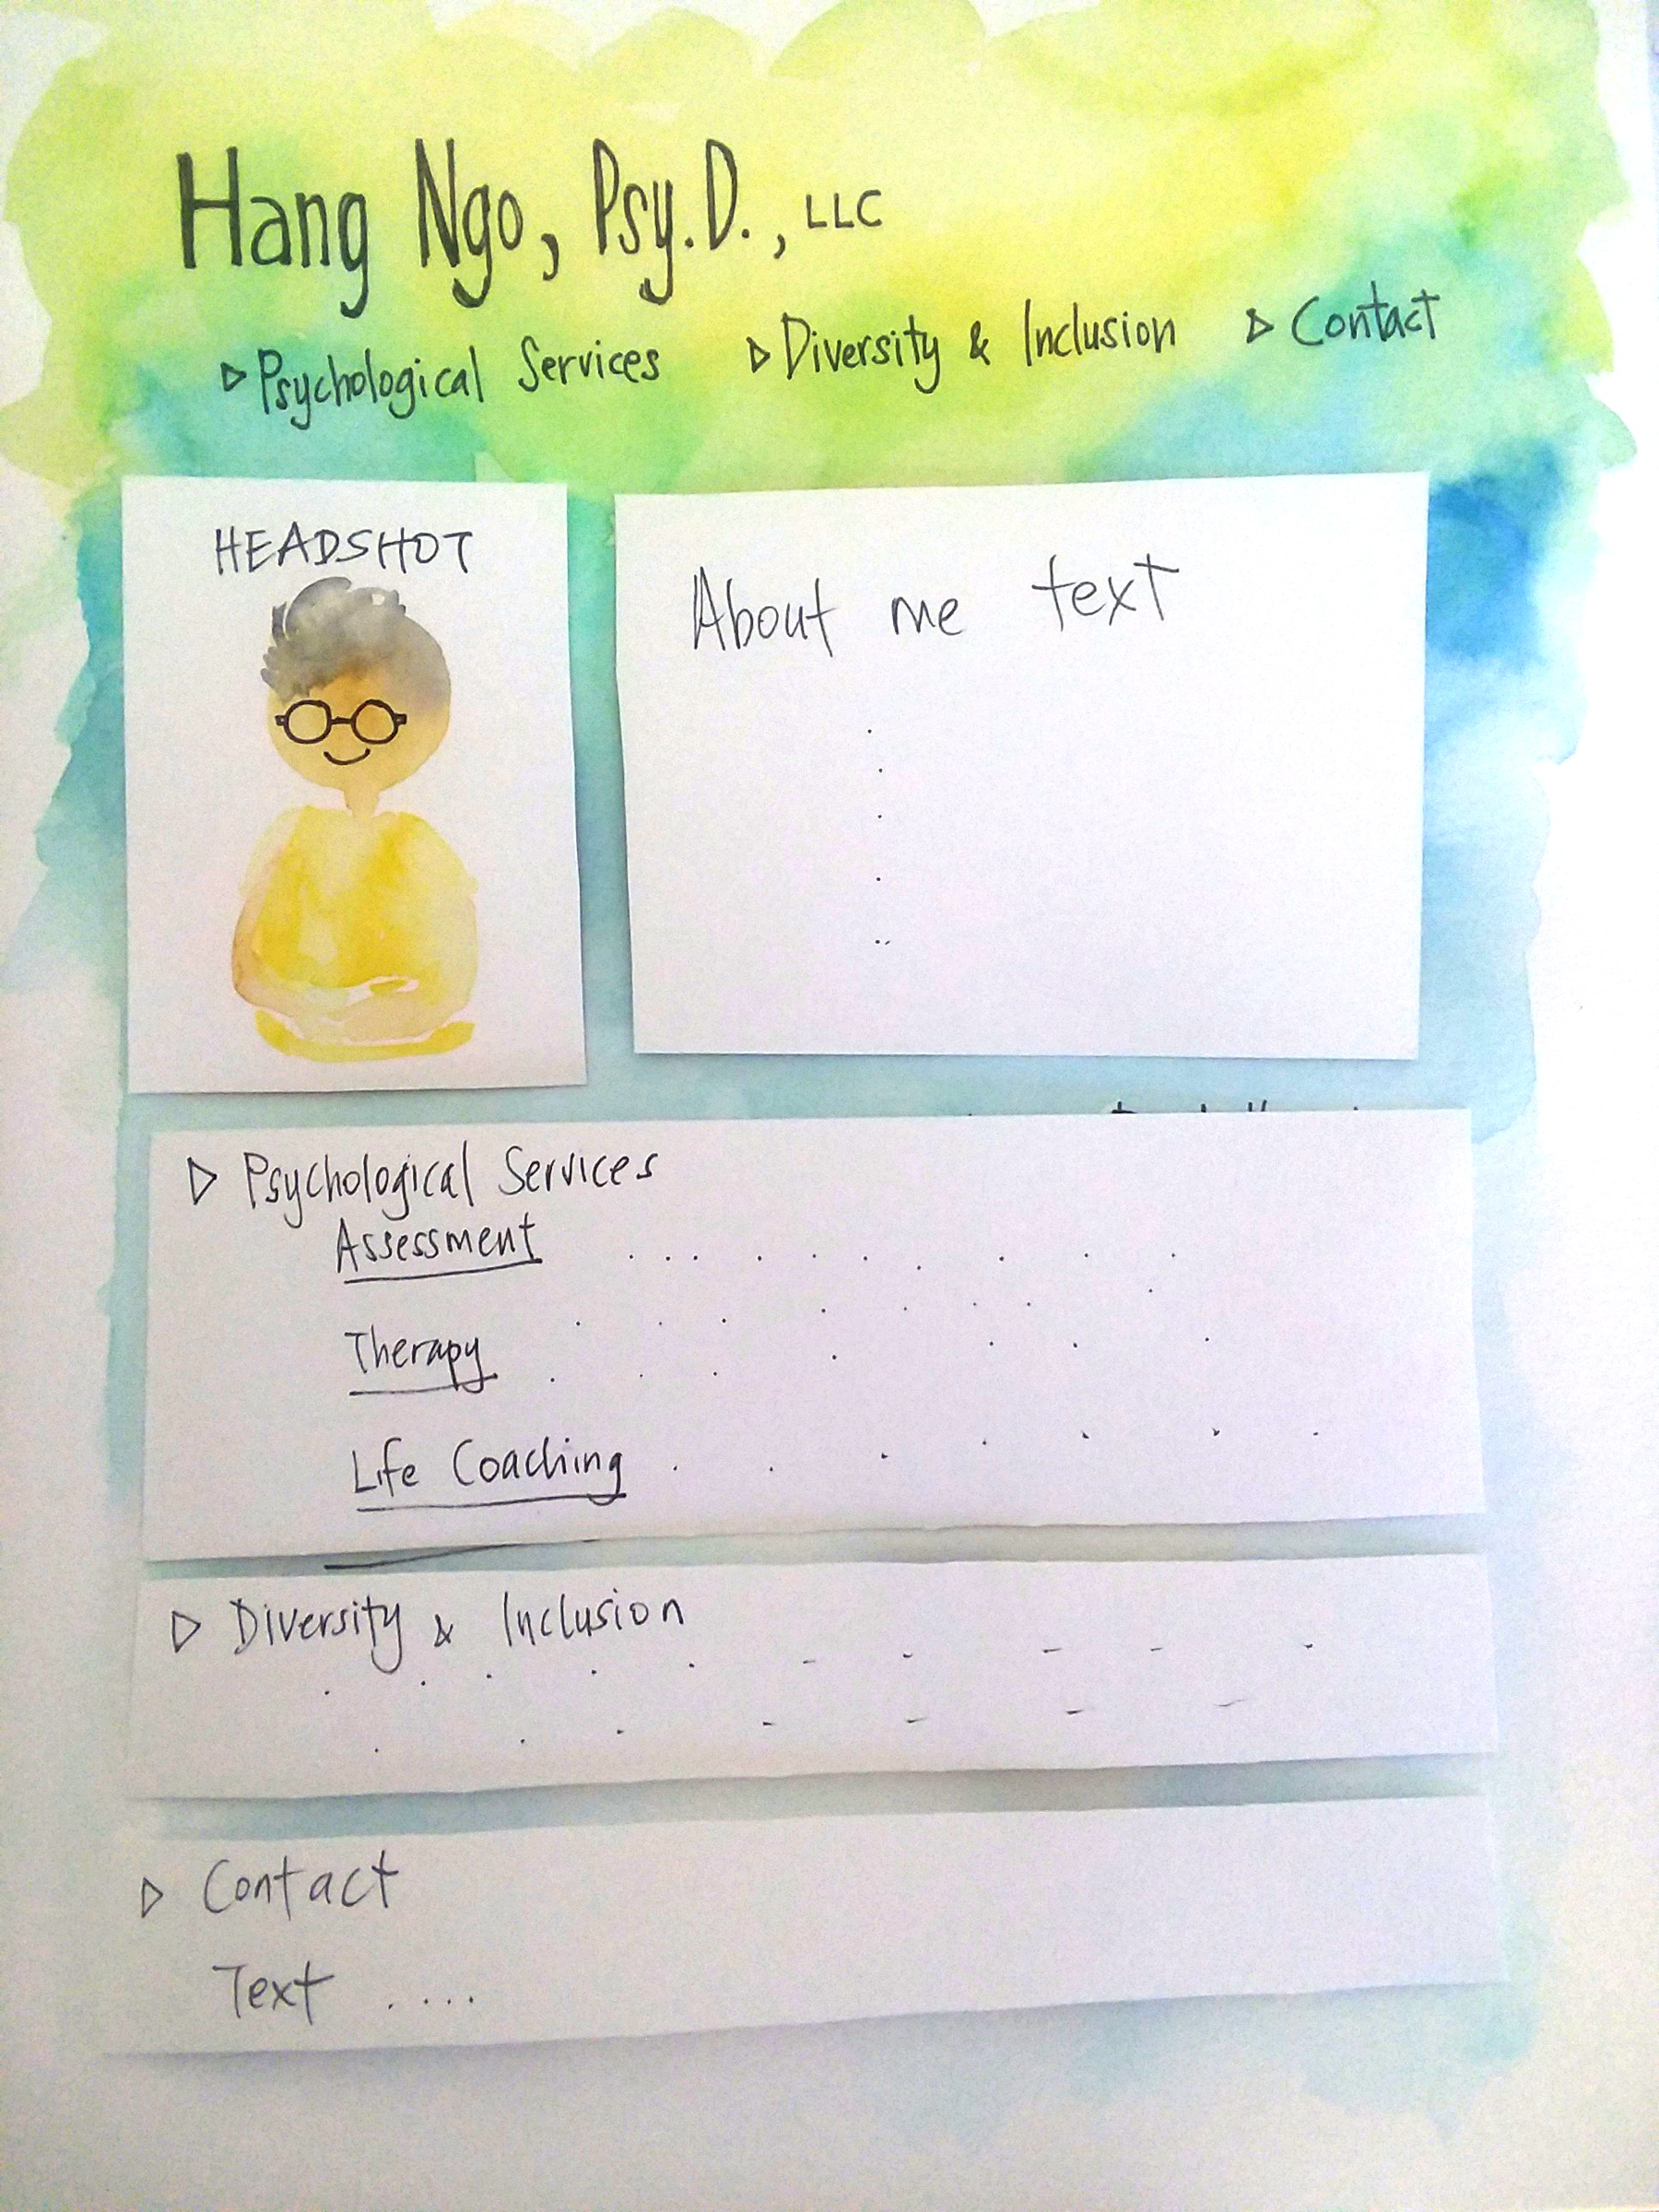 Hang Ngo, Psy.D., LLC
▷ Psychological Services ▷ Diversity & Inclusion ▷ Contact
HEADSHOT
About me text
▷ Psychological Services
Assessment
Therapy
Life Coaching
▷ Diversity & Inclusion
▷ Contact
Text ....